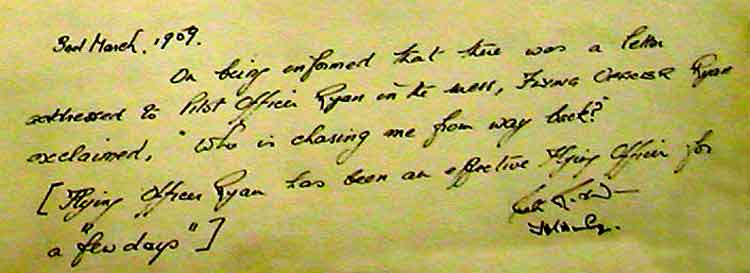 3rd March, 1909.
On being informed that there was a letter
addressed to Pilot Officer Ryan in the mess, FLYING OFFICER Ryan
exclaimed, "Who is chasing me from way back?"
[Flying Officer Ryan has been an effective Flying Officer for
a "few days"]